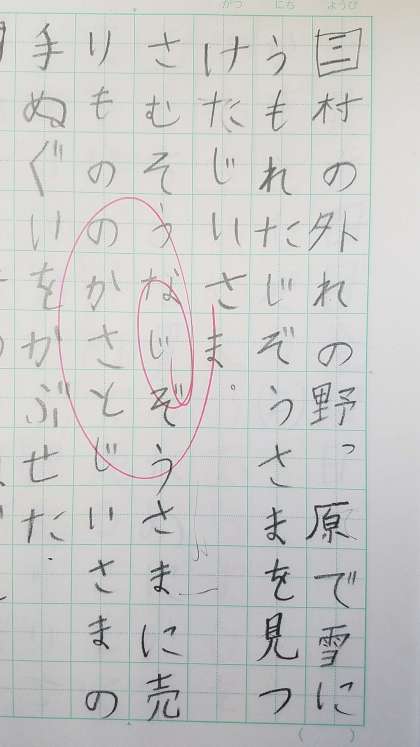 がつ にち ようび
三村の外れの野っ原で雪に
うもれたじぞうさまを見つ
けたじいさま。
さむそうなじぞうさまに売
りもののかさとじいさまの
手ぬぐいをかぶせた.